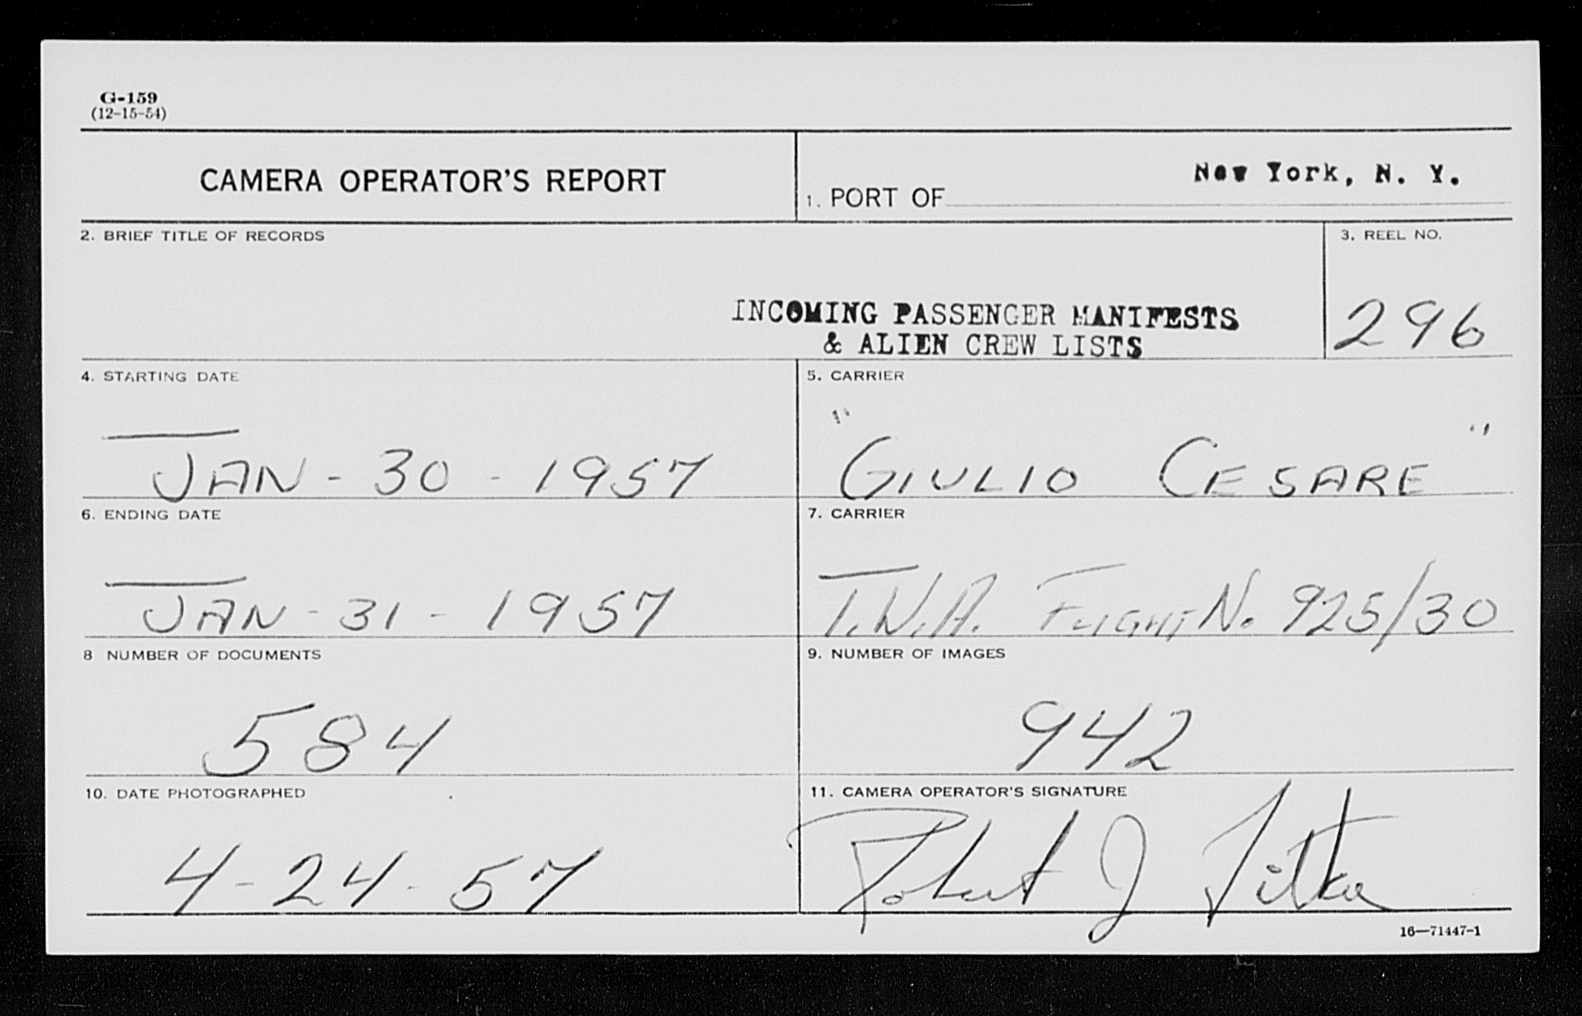 G-159
(12-15-54)
CAMERA OPERATOR'S REPORT
1. PORT OF New York, N. Y.
2. BRIEF TITLE OF RECORDS
INCOMING PASSENGER MANIFESTS
& ALIEN CREW LISTS
3. REEL NO.
296
4. STARTING DATE
JAN-30-1957
5. CARRIER
"GIULIO CESARE"
6. ENDING DATE
JAN-31-1957
7. CARRIER
T.W.A. FLIGHT N. 925/30
8 NUMBER OF DOCUMENTS
584
9. NUMBER OF IMAGES
942
10. DATE PHOTOGRAPHED
4-24-57
11. CAMERA OPERATOR'S SIGNATURE
Robert J
16—71447-1